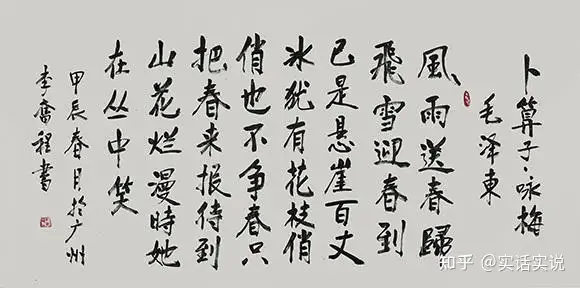 卜算子·咏梅
毛泽東
風雨送春歸
飛雪迎春到
已是悬崖百丈
冰犹有花枝俏
俏也不争春只
把春来报待到
山花烂漫時她
在丛中笑
甲辰春月於广州
李奮程書
知乎 @实话实说